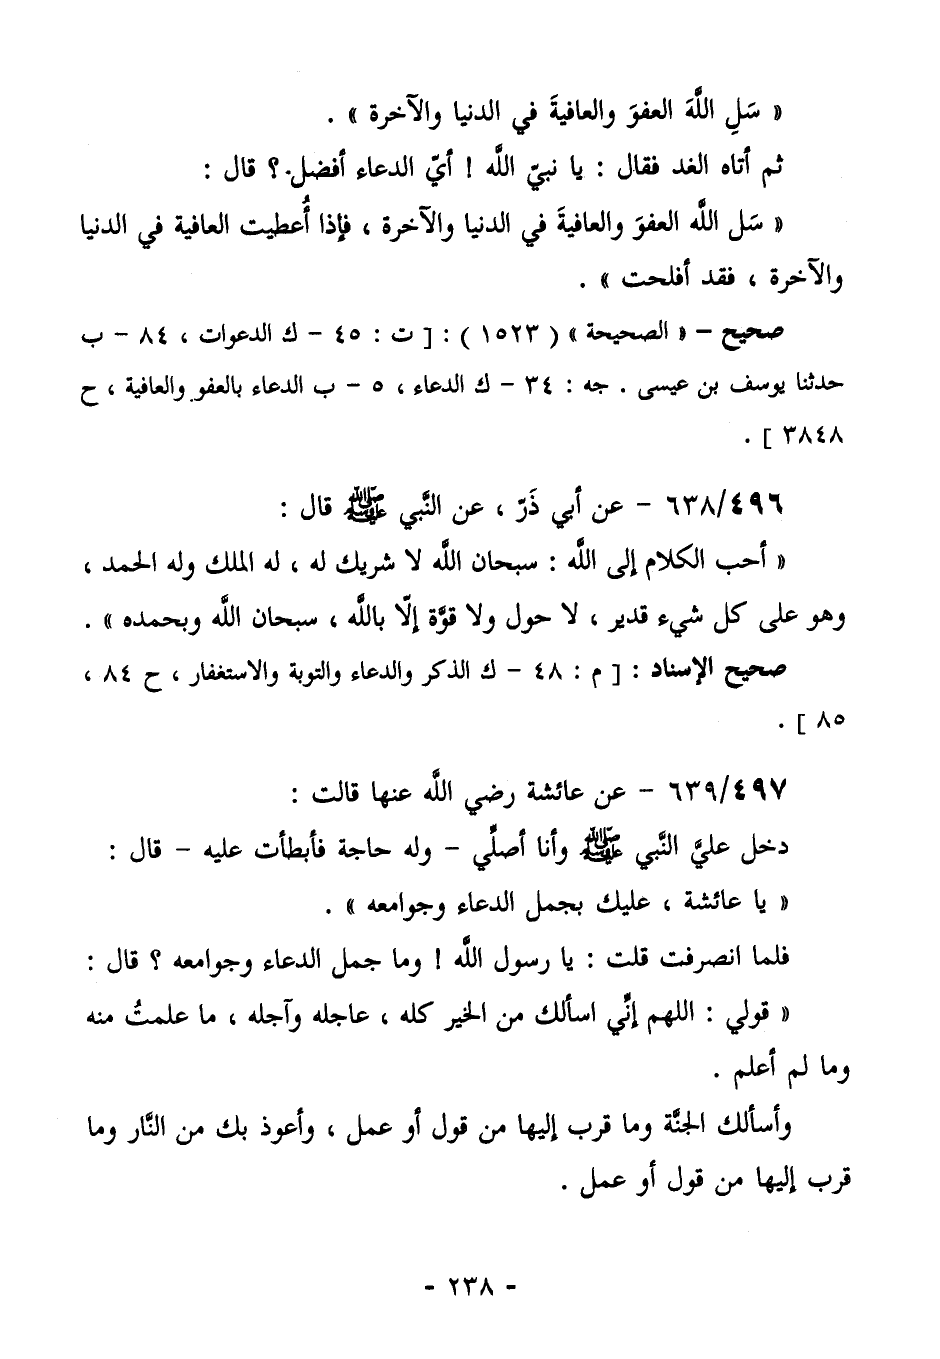 « سَلِ اللَّهَ العفوَ والعافيةَ في الدنيا والآخرة » .
ثم أتاه الغد فقال : يا نبيّ اللَّه ! أيّ الدعاء أفضل.؟ قال :
« سَل اللَّه العفوَ والعافيةَ في الدنيا والآخرة ، فإذا أُعطيت العافية في الدنيا
والآخرة ، فقد أفلحت » .
صحيح – « الصحيحة » ( ١٥٢٣ ) : [ ت : ٤٥ – ك الدعوات ، ٨٤ – ب
حدثنا يوسف بن عيسى . جه : ٣٤ – ك الدعاء ، ٥ – ب الدعاء بالعفو والعافية ، ح
٣٨٤٨ ] .
٦٣٨/٤٩٦ – عن أبي ذَرّ ، عن النَّبي ﷺ قال :
« أحب الكلام إلى اللَّه : سبحان اللَّه لا شريك له ، له الملك وله الحمد ،
وهو على كل شيء قدير ، لا حول ولا قوَّة إلّا باللَّه ، سبحان اللَّه وبحمده » .
صحيح الإسناد : [ م : ٤٨ – ك الذكر والدعاء والتوبة والاستغفار ، ح ٨٤ ،
٨٥ ] .
٦٣٩/٤٩٧ – عن عائشة رضي اللَّه عنها قالت :
دخل عليَّ النَّبي ﷺ وأنا أصلِّي – وله حاجة فأبطأت عليه – قال :
« يا عائشة ، عليك بجمل الدعاء وجوامعه » .
فلما انصرفت قلت : يا رسول اللَّه ! وما جمل الدعاء وجوامعه ؟ قال :
« قولي : اللهم إنِّي اسألك من الخير كله ، عاجله وآجله ، ما علمتُ منه
وما لم أعلم .
وأسألك الجنَّة وما قرب إليها من قول أو عمل ، وأعوذ بك من النَّار وما
قرب إليها من قول أو عمل .
- ٢٣٨ -